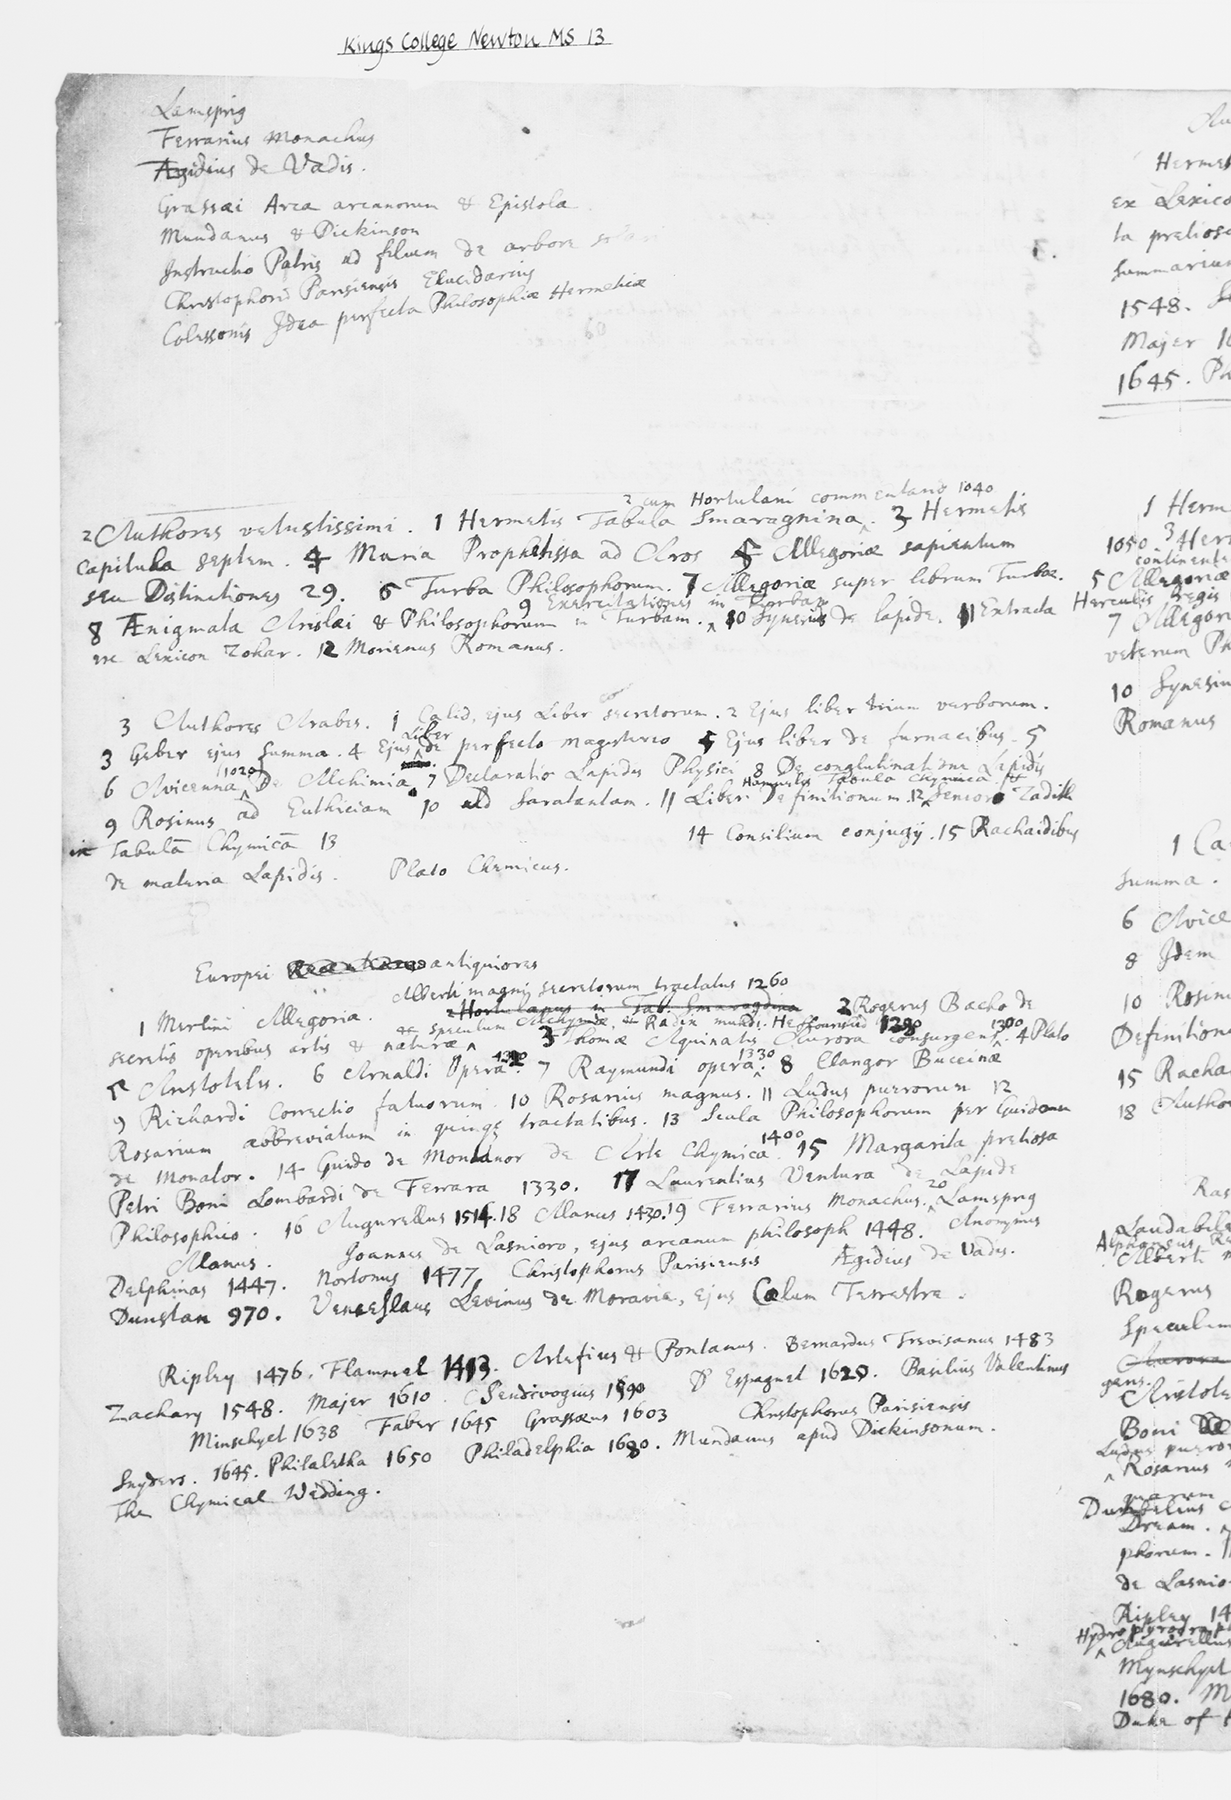 Kings College Newton MS 13
Lamsprig
Ferrarius Monachus
Ægidius de Vadis.
Grassæi Arca arcanorum & Epistola
Mundanus & Dickinson
Instructio Patris ad filium de arbore solari
Christophori Parisiensis Elucidarius
Colessonis Idea perfecta Philosophiæ Hermeticæ
2 cum Hortulani commentario 1040
2 Authores vetustissimi. 1 Hermetis Tabula Smaragnina. 3 Hermetis
capitula septem. 4 Maria Prophetissa ad Aros 5 Allegoriæ sapientum
seu Distinctiones 29. 6 Turba Philosophorum. 7 Allegoriæ super librum Turbæ.
9 Exercitationes in Turbam
8 Ænigmata Arislai & Philosophorum in Turbam. 10 Synesius de lapide. 11 Extracta
ex Lexicon Zohar. 12 Morienus Romanus.
3 Authores Arabes. 1 Calid, ejus Liber secretorum. 2 Ejus liber trium verborum.
Liber
3 Geber ejus Summa. 4 Ejus de perfecto magisterio 5 Ejus liber de furnacibus. 5
1020
6 Avicenna De Alchimia. 7 Declaratio Lapidis Physici 8 De conglutinatione Lapidis
Hamuelis Tabula Chymica
9 Rosinus ad Euthiciam 10 ad Saratantam. 11 Liber Definitionum. 12 Senior Zadith
in Tabulā Chymicā 13 14 Consilium conjugij. 15 Rachaidibus
de materia Lapidis. Plato Chemicus.
Europei antiquiores
Alberti magni secretorum tractatus 1260
1 Merlini Allegoria. 2 Hortulanus in Tab. Smaragdina 2 Rogerus Bacho de
& speculum Alchymiæ, & Radix mundi. He flourished 1280
secretis operibus artis & naturæ 3 Thomæ Aquinatis Aurora consurgens 1300. 4 Plato
5 Aristoteles. 6 Arnaldi Opera. 7 Raymundi opera 1330. 8 Clangor Buccinæ
9 Richardi Correctio fatuorum. 10 Rosarius magnus. 11 Ludus puerorum 12
Rosarium abbreviatum in quinq tractatibus. 13 Scala Philosophorum per Guidonem
de Monator. 14 Guido de Montanor de Arte Chymica 1400. 15 Margarita pretiosa
Petri Boni Lombardi de Ferrara 1330. 17 Laurentius Ventura de Lapide
Philosophico. 16 Augurellus 1514. 18 Alanus 1430. 19 Ferrarius Monachus. 20 Lamsprig
Alanus. Joannes de Lasnioro, ejus arcanum philosoph 1448. Anonymus
Delphinas 1447. Nortonus 1477, Christophorus Parisiensis Ægidius de Vadis.
Dunstan 970. Venceslaus Levinus de Moravia, ejus Cælum Terrestre.
Ripley 1476. Flammel 1413. Artefius & Pontanus. Bernardus Trevisanus 1483
Zachary 1548. Majer 1610. Sendivogius 1590 D' Espagnet 1620. Basilius Valentinus
Minschyet 1638 Faber 1645 Grassæus 1603 Christophorus Parisiensis
Snyders. 1645. Philaletha 1650 Philadelphia 1680. Mundanus apud Dickinsonum.
The Chymical Wedding.
ex Lexico
ta pretiosa
1548.
Majer
1645.
1 Herm
1050. 3
5 Allegoriæ
Herculis Regis
7
veterum
10 Synesiu
Romanus
summa.
6
8 Idem
10 Rosin
Definitione
15 Racha
18
Laudabile
Alphonsus
Albert
Rogerus
Speculum
Boni
Rosarius
Dream.
phorum.
de Lasnio
Ripley
Augurellus
Mynschyet
1680.
Duke of